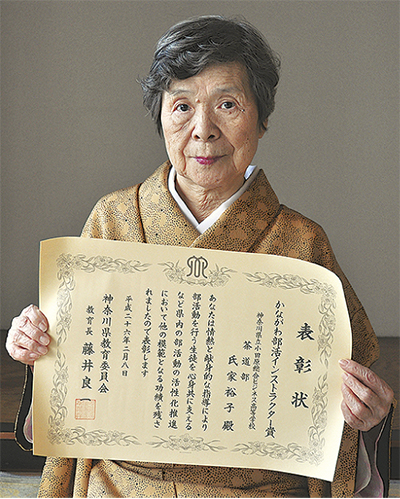 表彰状
かながわ部活インストラクター賞
神奈川県立小田原総合ビジネス高等学校
茶道部
氏家裕子殿
あなたは情熱と献身的な指導により
部活動を行う生徒を心身共に支える
など県内の部活動の活性化推進
において他の模範となる功績を残さ
れましたので表彰します
平成二十六年二月八日
神奈川県教育委員会
教育長 藤井良一